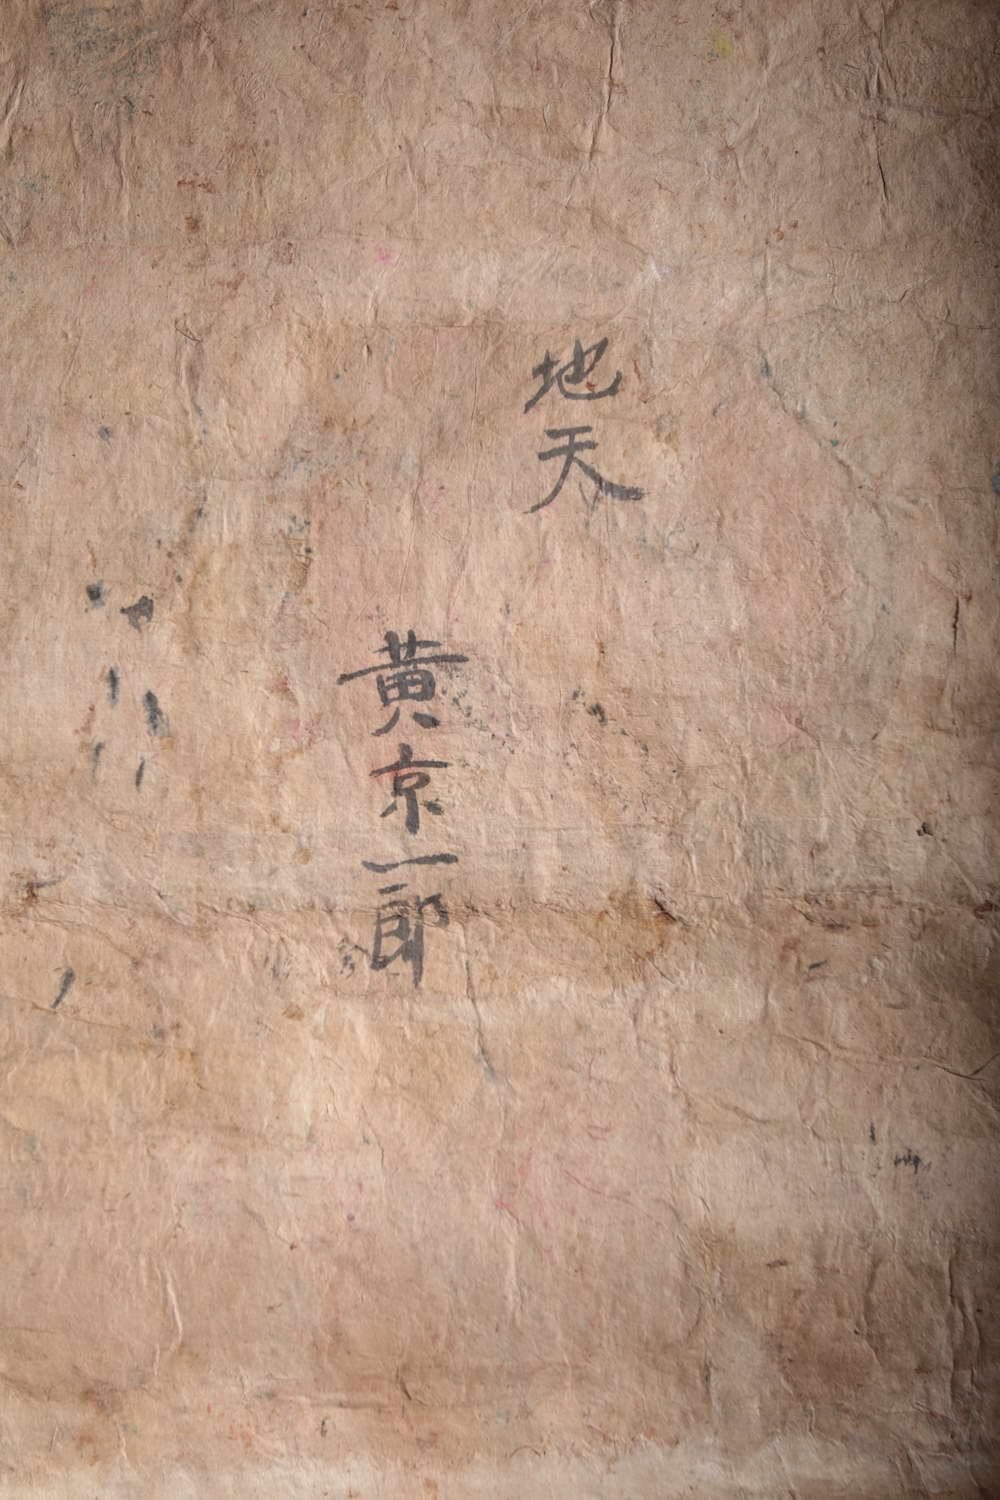 地天
黄京一郎